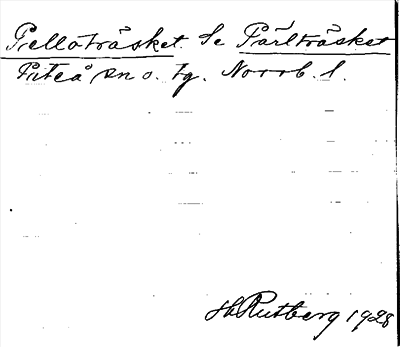 Pelloträsket. Se Pärlträsket
Piteå sn o. tg. Norrb. l.
H Rutberg 1928